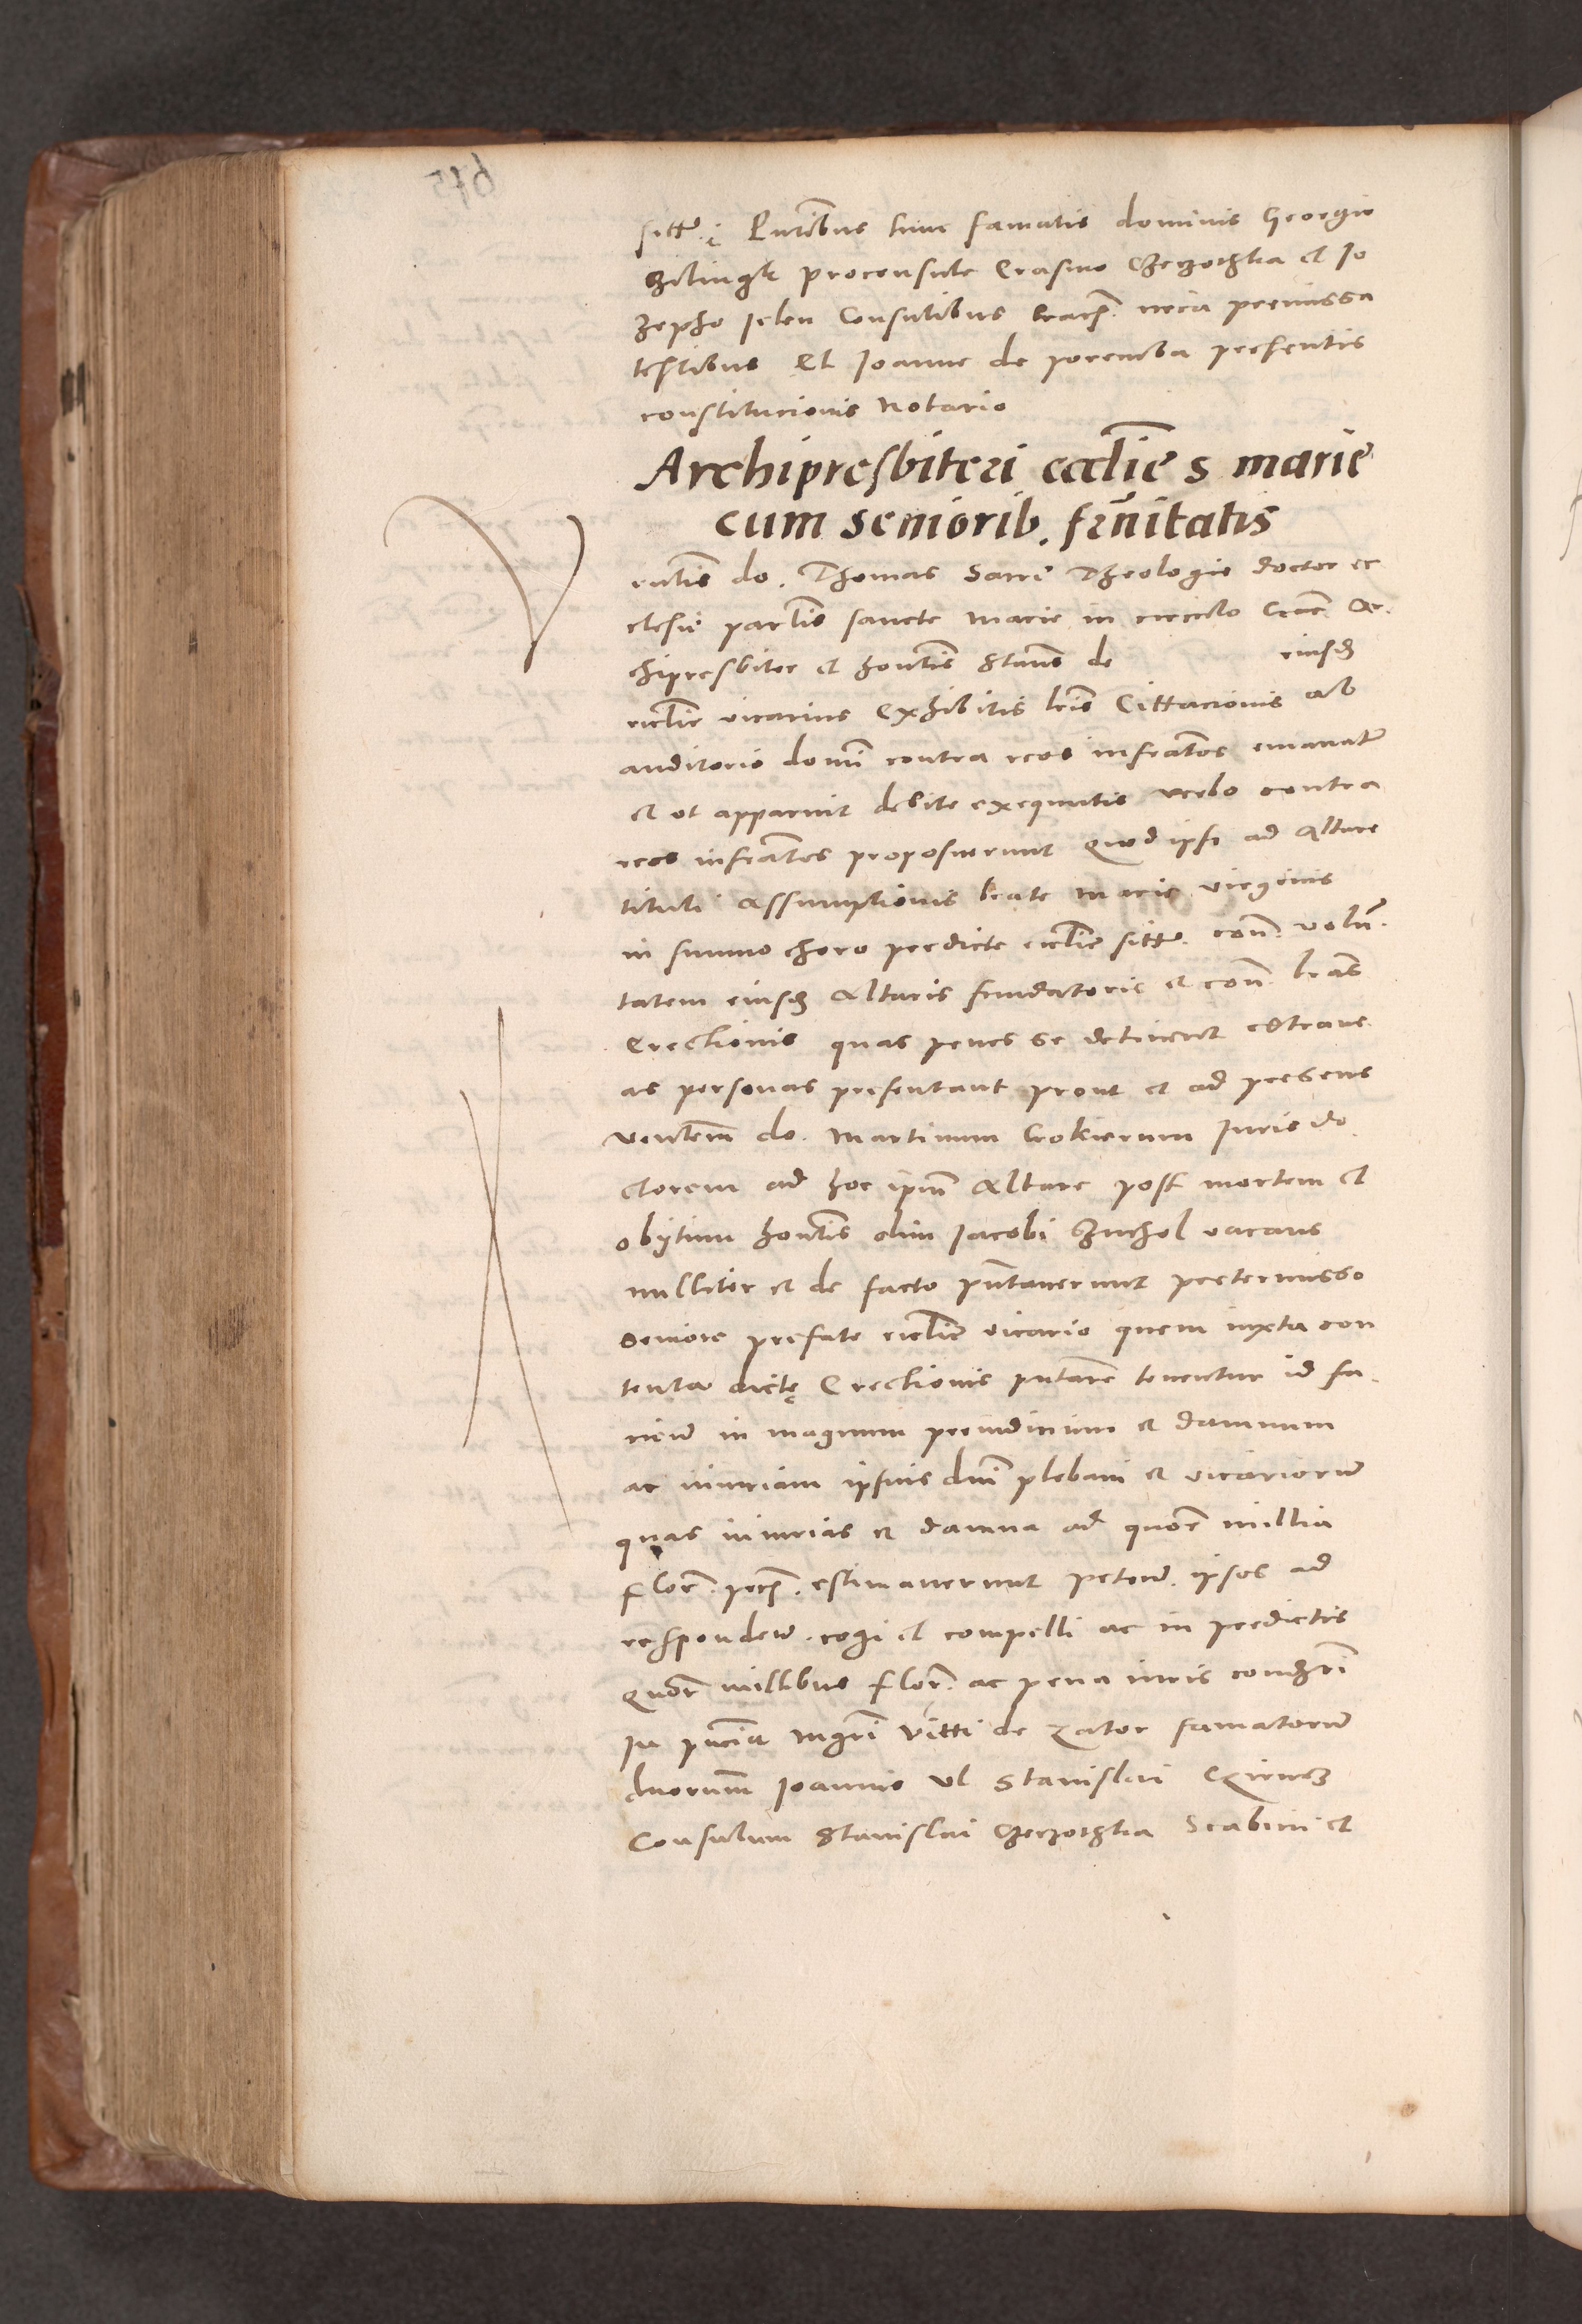 sitt. Pntibus tunc famatis dominis Georgio
Szilingk proconsule Erasmo Czeczothka et Io
zepho Jelen Consulibus Cracs. circa premissa
testibus Et Joanne de poremba presentis
constitucionis Notario
Archipresbiteri ecclie s marie
cum seniorib. frnitatis
Venlis do. Thomas Sacre Theologie doctor ec
clesie parlis sancte Marie in circulo Crac Ar
chipresbiter et honlis Stans de eiusd
ecclie vicarius Exhibitis lris Cittacionis ab
auditorio domi contra reos infratos emanat
et ut apparuit debite exequutis verbo contra
reos infratos proposuerunt Quod ipsi ad Altare
tituli Assumptionis beate Marie virginis
in summo choro predicte ecclie sitt. con. volun
tatem eiusd Altaris fundatoris et con. lras
Erectionis quas penes se detinent extrane
as personas presentant prout et ad presens
venlem do. Martinum Crokierum Juris do
ctorem ad hoc ipm Altare post mortem et
obijtum honlis olim Jacobi vacans
nulliter et de facto pntaverunt pretermisso
seniore prefate ecclie vicario quem iuxta con
tenta dictę Erectionis pntare tenentur id fa
ciend in magnum preiudicium et damnum
ac iniuriam ipsius dni plebani et vicariorum
quas iniurias et damna ad quor millia
flor. pecs. estimaverunt petend. ipsos ad
respondend. cogi et compelli ac in predictis
quor millibus flor. ac pena iuris
In pncia Mgri Vitti de Zator famatorum
dnorum Joannis ul Stanislai
Consulum Stanislai Czeczothka Scabini et